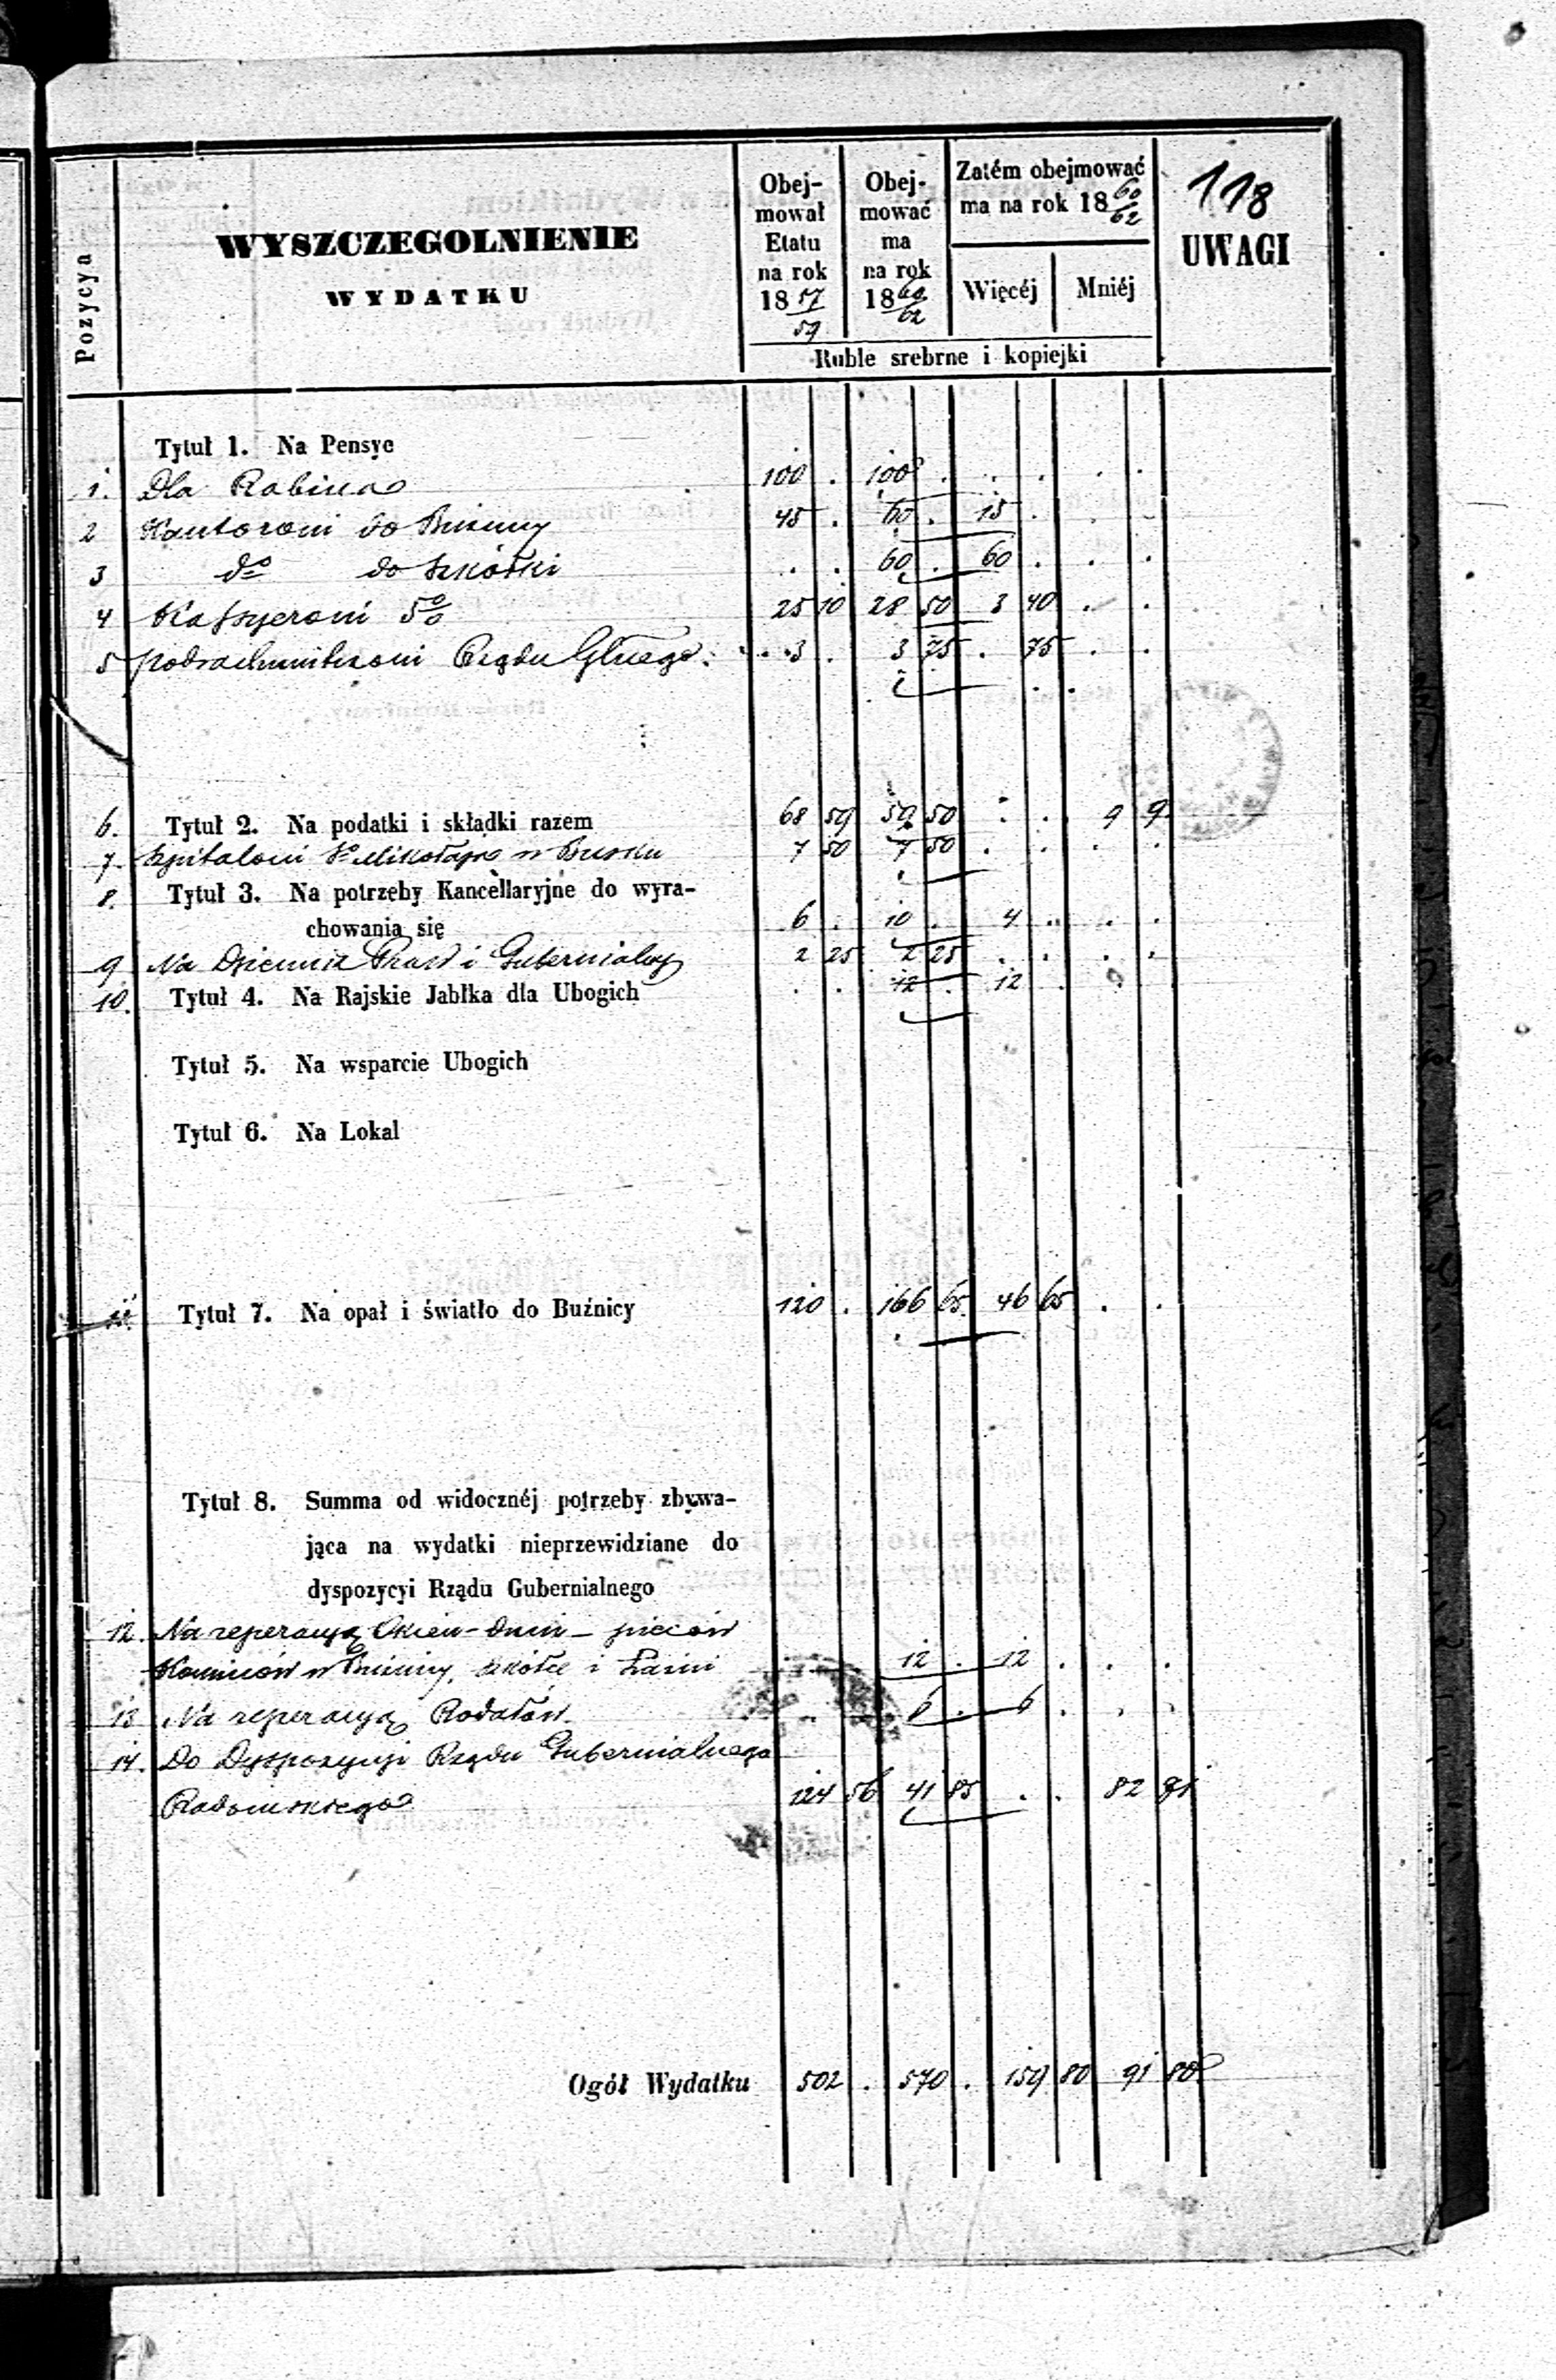 118
Pozycya
WYSZCZEGOLNIENIE
WYDATKU
Obej-
mował
Etatu
na rok
18 57/59
Obej-
mować
ma
na rok
18 60/62
Zatém obejmować
ma na rok 18 60/62
Więcéj Mniéj
UWAGI
Ruble srebrne i kopiejki
Tytuł 1. Na Pensye
1. Dla Rabina 100 . 100 . . . . .
2 Kantorowi do Buźnicy 45 . 60 . 15 . . .
3 do do Szkółki . . 60 . 60 . . .
4 Kassyerowi 5% 25 10 28 50 3 40 . .
5 Podrachmistrzowi Rządu Glnego . 3 . 3 75 . 75 . .
6. Tytuł 2. Na podatki i składki razem 68 59 59 50 . . 9 9
7. Szpitalowi So Mikołaja w Busku 7 50 7 50 . . . .
8. Tytuł 3. Na potrzeby Kancellaryjne do wyra-
chowania się 6 . 10 . 4 . . .
9 Na Dziennik Praw i Gubernialny 2 25 2 25 . . . .
10. Tytuł 4. Na Rajskie Jabłka dla Ubogich . . 12 . 12 .
Tytuł 5. Na wsparcie Ubogich
Tytuł 6. Na Lokal
11. Tytuł 7. Na opał i światło do Buźnicy 120 . 166 65 46 65 . .
Tytuł 8. Summa od widocznéj potrzeby zbywa-
jąca na wydatki nieprzewidziane do
dyspozycyi Rządu Gubernialnego
12. Na reperacyą Okien - drzwi - pieców
Kominów w Buźnicy, szkółce i Łaźni . . 12 . 12 . . .
13 Na reperacyą Rodałów . . 6 . 6 . . .
14. Do Dyspozycyi Rządu Gubernialnego
Radomskiego 124 56 41 85 . . 82 91
Ogół Wydatku 502 . 570 . 159 80 91 80